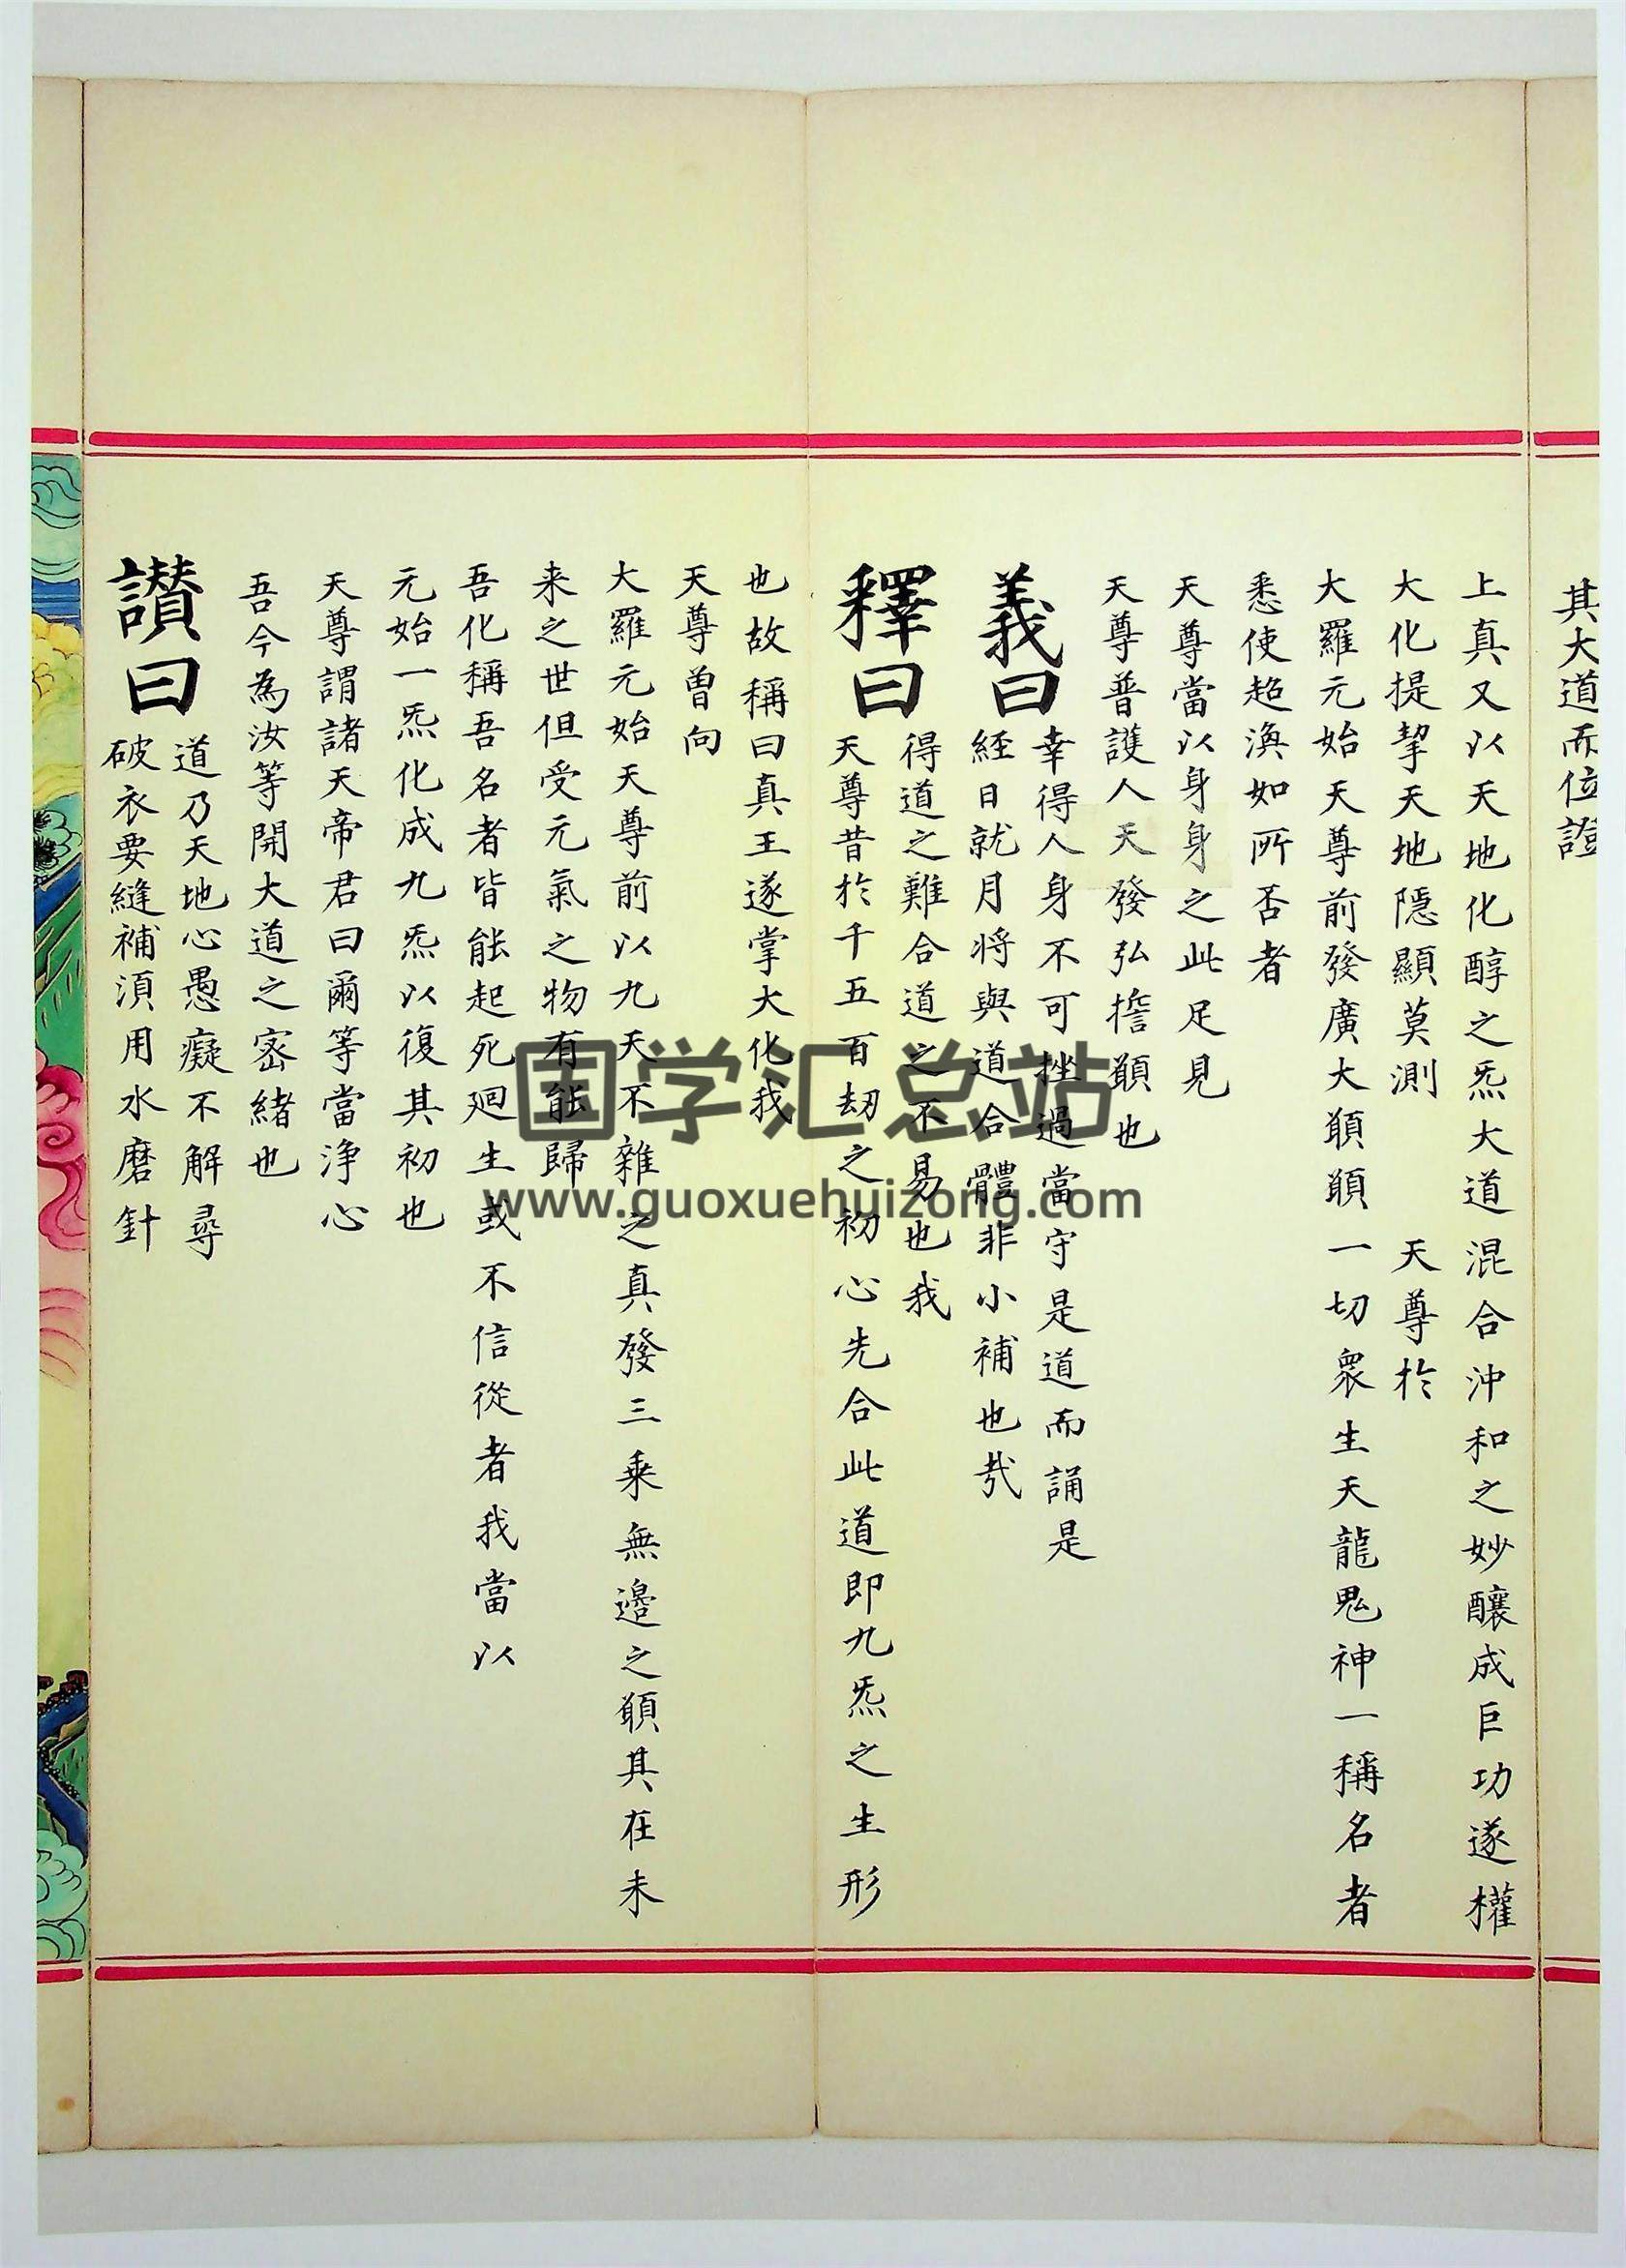 其大道而位證
上真又以天地化醇之炁大道混合沖和之妙釀成巨功遂權
大化提挈天地隱顯莫測 天尊於
大羅元始天尊前發廣大願願一切眾生天龍鬼神一稱名者
悉使超渙如所否者
天尊當以身身之此足見
天尊普護人天發弘擔願也
義曰
幸得人身不可挫過當守是道而誦是
経日就月将與道合體非小補也哉
釋曰
得道之難合道之不易也我
天尊昔於千五百劫之初心先合此道即九炁之生形
也故稱曰真王遂掌大化我
天尊曽向
大羅元始天尊前以九天不雜之真發三乘無邊之願其在未
来之世但受元氣之物有能歸
吾化稱吾名者皆能起死廻生或不信從者我當以
元始一炁化成九炁以復其初也
天尊謂諸天帝君曰爾等當浄心
吾今為汝等開大道之密緒也
讃曰
道乃天地心愚癡不解尋
破衣要縫補須用水磨針
国学汇总站
www.guoxuehuizong.com